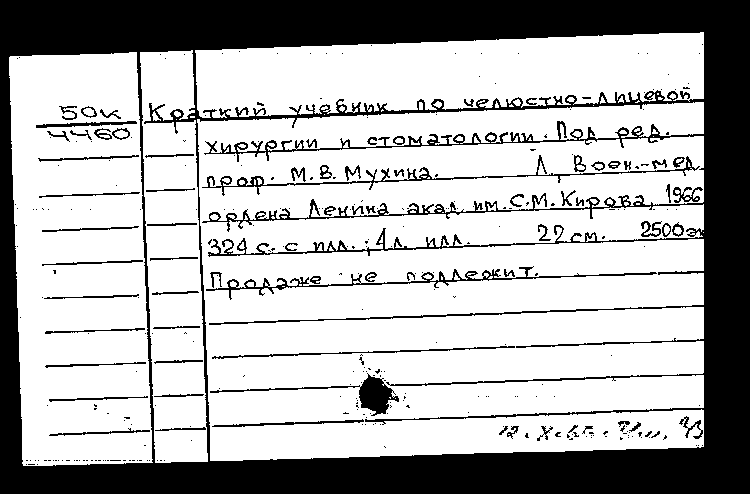 50к
4460
Краткий учебник по челюстно-лицевой
хирургии и стоматологии. Под ред.
проф. М.В. Мухина. Л., Воен.-мед.
ордена Ленина акад. им. С.М. Кирова, 1966
324 с. с илл.; 4 л. илл. 22 см. 2500 эк
Продаже не подлежит.